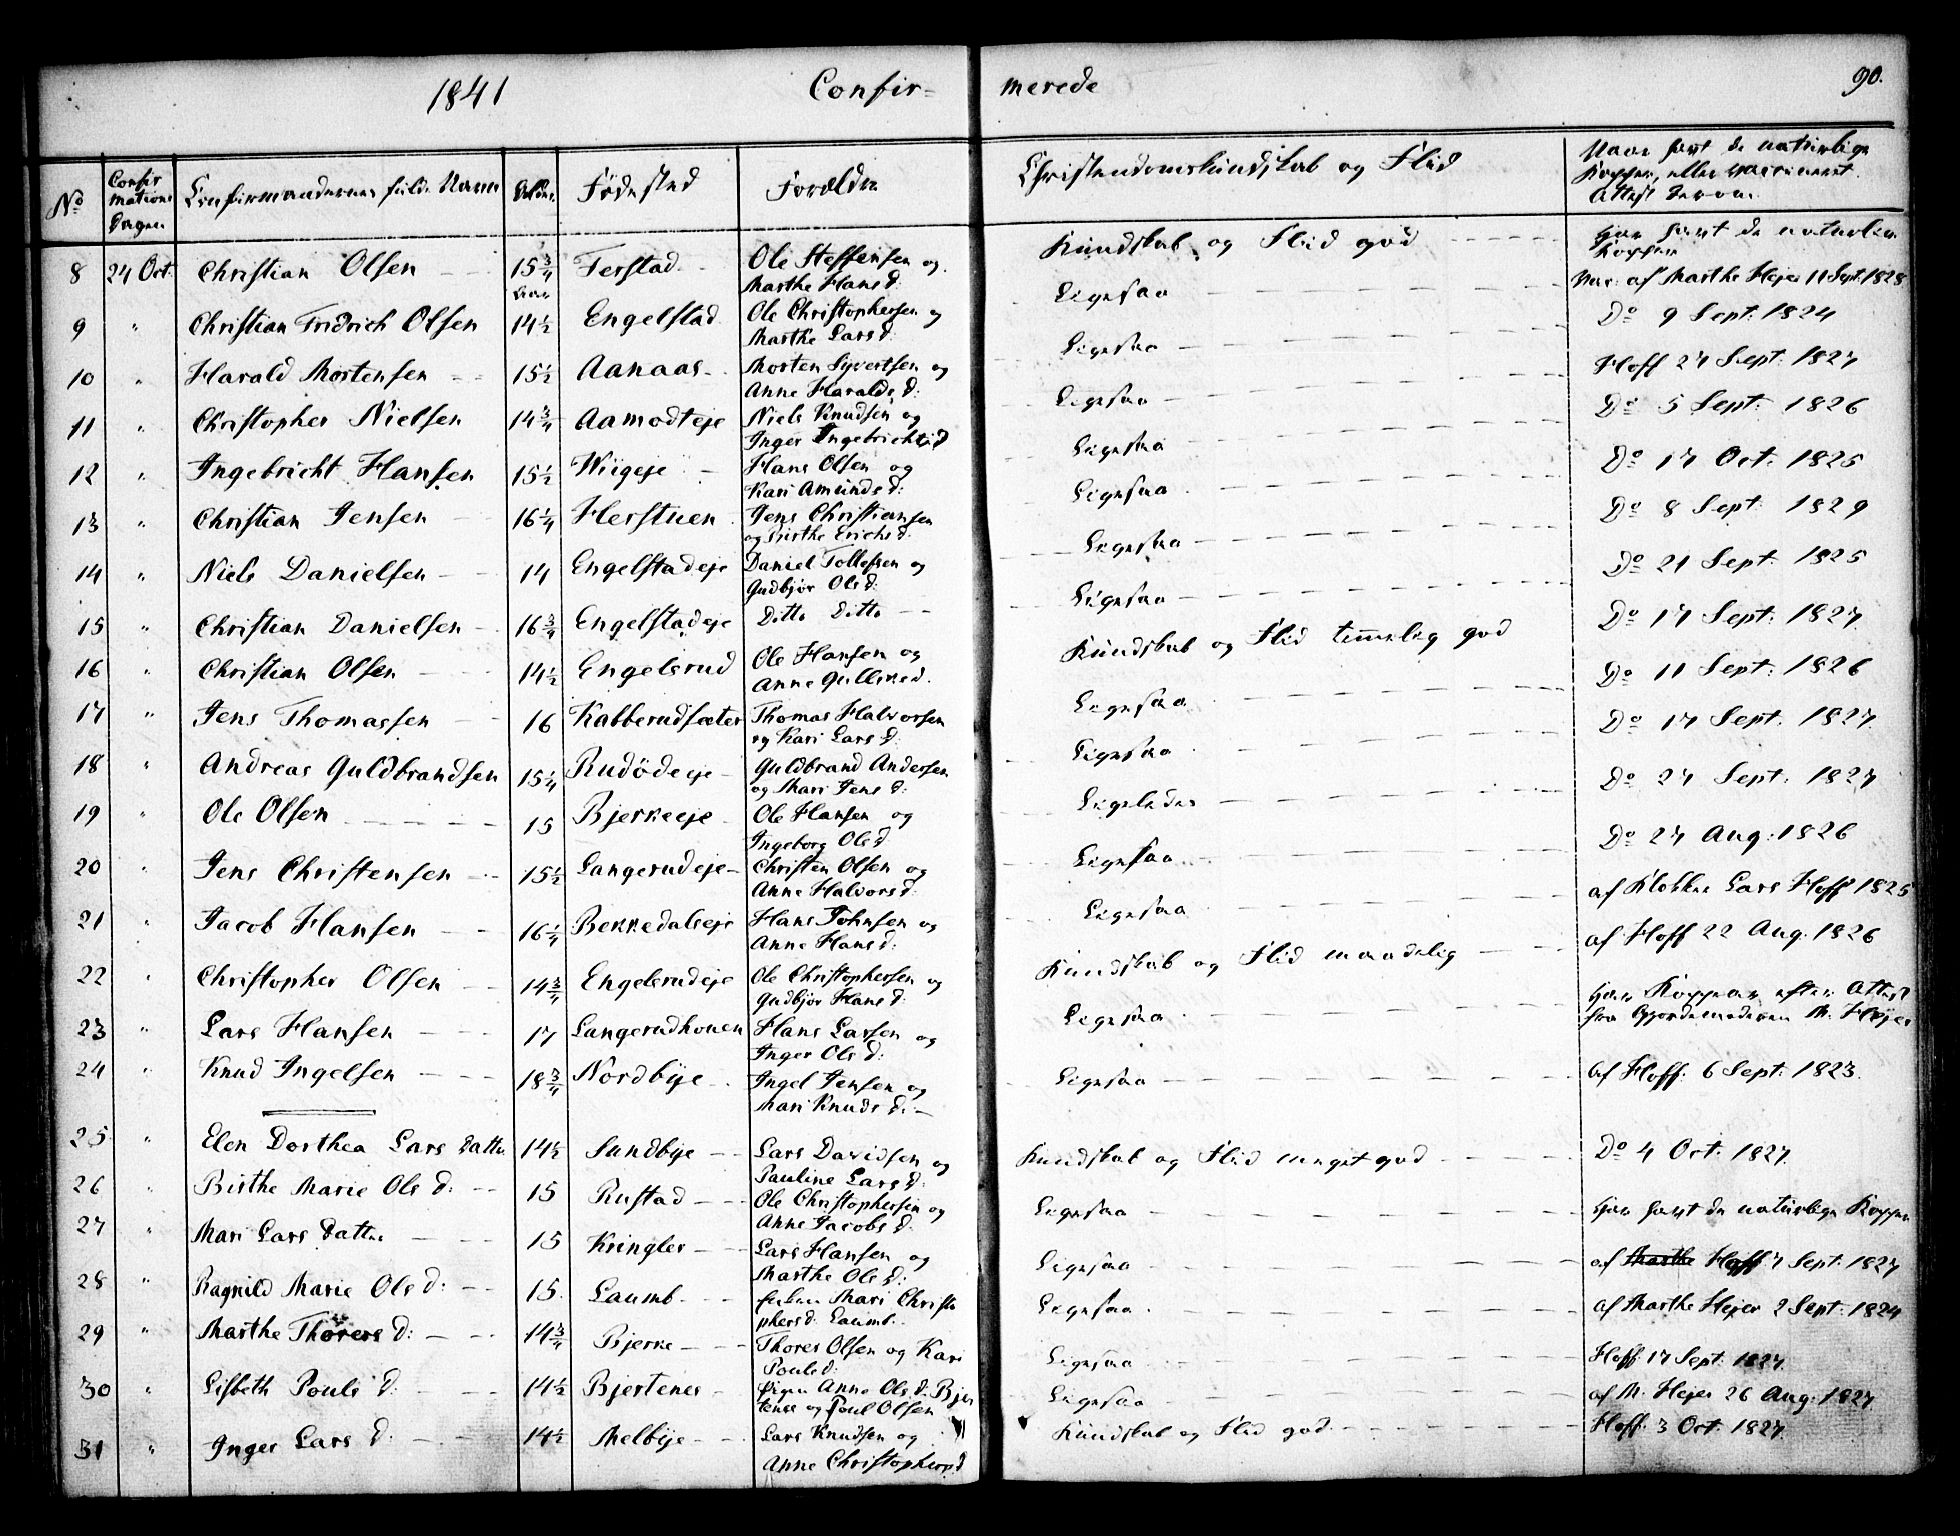 1841 Confir= merede 90.
No Confirmations Dagen Confirmandernes fulde Navn Alder Födested Forældre Christendomskundskab og Flid Have havt de naturlige Kopper, eller vaccineret. Attest derom.
8 24 Oct. Christian Olsen 15 3/4 Aar Ferstad Ole Steffensen og Marthe Hansd: Kundskab og Flid god Har havt de naturlige Kopper
9 " Christian Fridrich Olsen 14 1/2 Engelstad Ole Christophersen og Marthe Larsd: Ligesaa Vac: af Marthe Hejer 11 Sept. 1828
10 " Harald Mortensen 15 1/2 Aanaas Morten Syvertsen og Anne Haraldsd: Ligesaa Do 9 Sept: 1824
11 " Christopher Nielsen 14 3/4 Aamodteje Niels Knudsen og Inger Ingebrichtsd Ligesaa Hoff 27 Sept: 1827
12 " Ingebricht Hansen 15 1/2 Wiigeje Hans Olsen og Kari Amundsd: Ligesaa Do 5 Sept: 1826
13 " Christian Jensen 16 1/4 Herstuen Jens Christiansen og Birthe Erichsd. Ligesaa Do 17 Oct: 1825
14 " Niels Danielsen 14 Engelstadeje Daniel Tollefsen og Gudbjör Olsd: Ligesaa Do 8 Sept: 1829
15 " Christian Danielsen 16 3/4 Engelstadeje Ditto Ditto Ligesaa Do 21 Sept: 1825
16 " Christian Olsen 14 1/2 Engelsrud Ole Hansen og Anne Gulliksd. Kundskab og Flid temmelig god Do 17 Sept: 1827
17 " Jens Thomassen 16 Kabberudsæter Thomas Halvorsen og Kari Larsd: Ligesaa Do 11 Sept: 1826
18 " Andreas Guldbrandsen 15 1/4 Rudödeje Guldbrand Andersen og Mari Jensd: Ligesaa Do 17 Sept: 1827
19 " Ole Olsen 15 Bjerkeeje Ole Hansen og Ingeborg Olsd Ligeledes Do 27 Sept: 1827
20 " Jens Christensen 15 1/2 Langerudeje Christen Olsen og Anne Halvorsd: Ligesaa Do 27 Aug: 1826
21 " Jacob Hansen 16 1/4 Bekkedalseje Hans Johnsen og Anne Hansd: Ligesaa af Klokker Lars Hoff 1825
22 " Christopher Olsen 14 3/4 Engelsrudeje Ole Christophersen og Gudbjör Hansd: Kundskab og Flid maadelig af Hoff 22 Aug. 1826
23 " Lars Hansen 17 Langerudhouen Hans Larsen og Inger Olsd: Ligesaa Har Koppear efter Attest fra Gjordemoderen M. Hejer
24 " Knud Ingelsen 18 3/4 Nordbye Ingel Jensen og Mari Knudsd: Ligesaa af Hoff: 6 Sept: 1823.
25 " Elen Dorthea Lars datter 14 1/2 Sundbye Lars Davidsen og Pauline Larsd: Kundskab og Flid meget god Do 4 Oct. 1827.
26 " Birthe Marie Olsd: 15 Rustad Ole Christophersen og Anne Jacobsd. Ligesaa Har havt de naturlige Kopper
27 " Mari Lars datter 15 Kringler Lars Hansen og Marthe Olsd: Ligesaa af Marthe Hoff 7 Sept: 1827
28 " Ragnild Marie Olsd: 15. Laumb. Mari Christophersd: Laumb. Ligesaa af Marthe Hejer 2 Sept: 1824
29 " Marthe Thoresd: 14 3/4 Bjerke Thores Olsen og Kari Poulsd: Ligesaa Hoff: 17 Sept: 1827.
30 " Lisbeth Poulsd: 14 1/2 Bjertenes Pigen Anne Olsd: Bjertenes og Poul Olsen Ligesaa af M. Hejer 26 Aug: 1827
31 " Inger Larsd: 14 1/2 Melbye Lars Knudsen og Anne Christophersd Kundskab og Flid god. Hoff: 3 Oct: 1827.